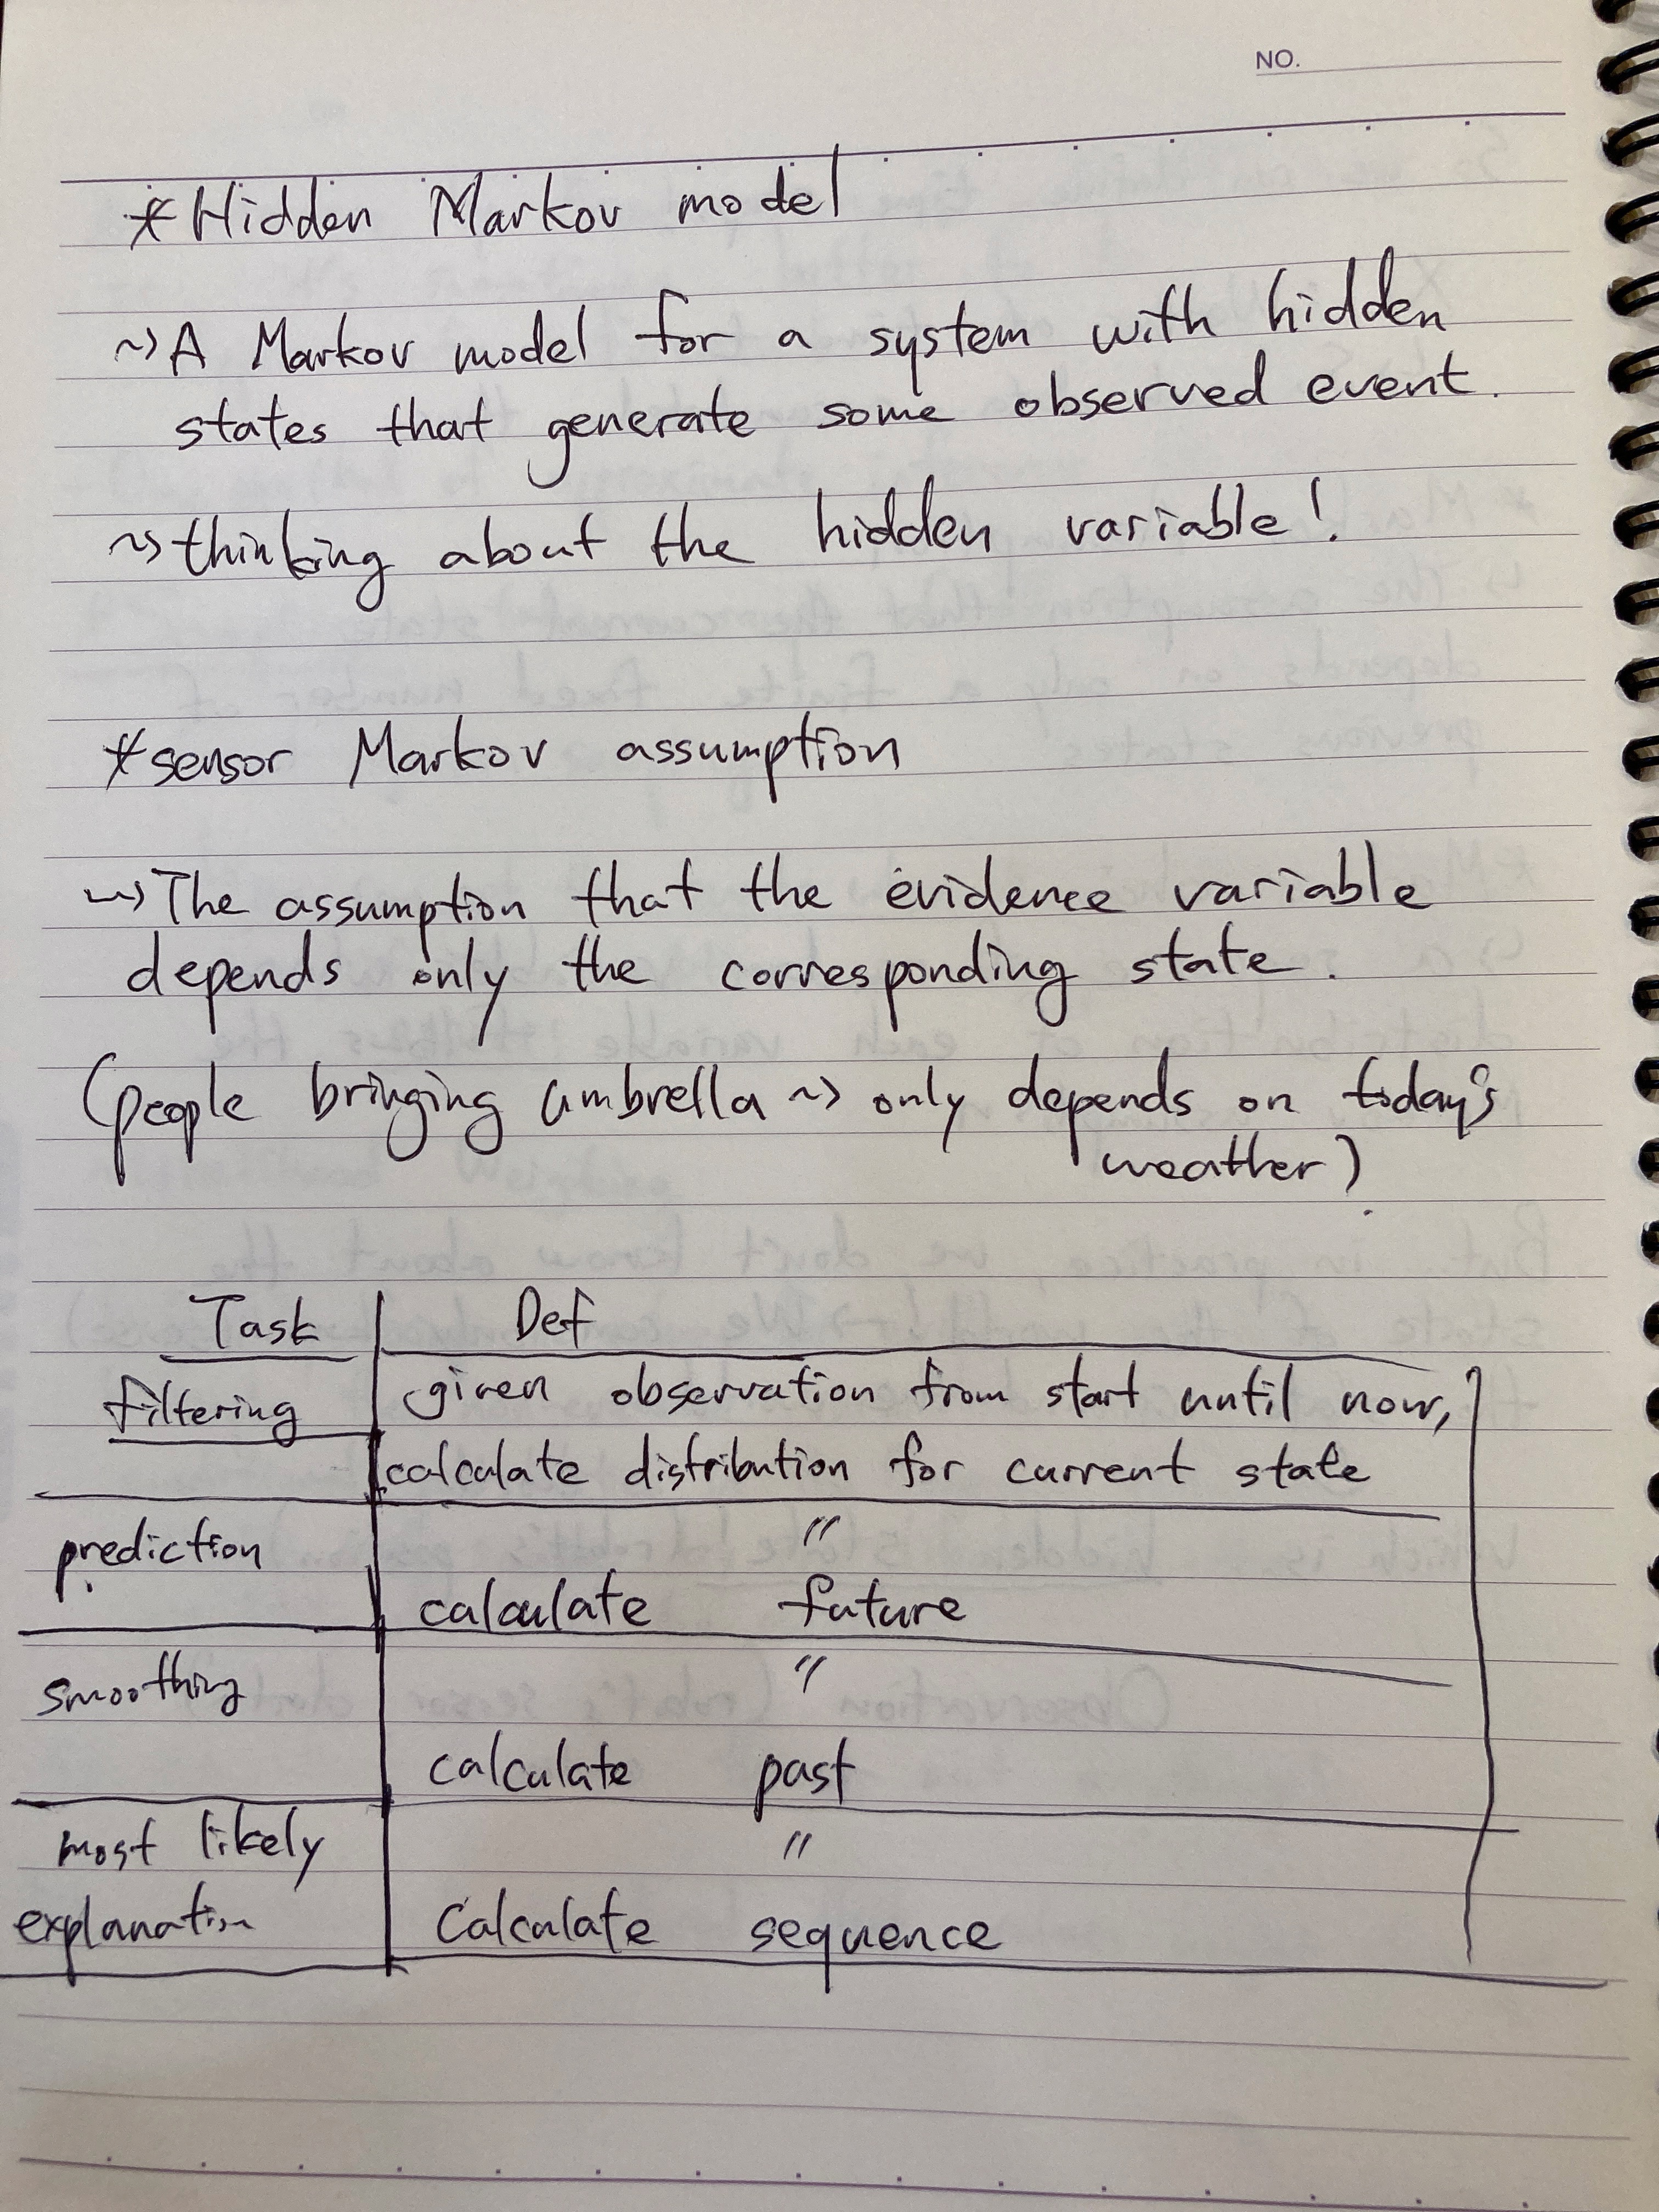 NO.
*Hidden Markov model
~> A Markov model for a system with hidden
states that generate some observed event.
~> thinking about the hidden variable!
*sensor Markov assumption
~> The assumption that the evidence variable
depends only the corresponding state.
(people bringing umbrella ~> only depends on today's
weather)
Task | Def
filtering | given observation from start until now,
calculate distribution for current state
prediction | 〃
calculate future
smoothing | 〃
calculate past
most likely | 〃
explanation | Calculate sequence